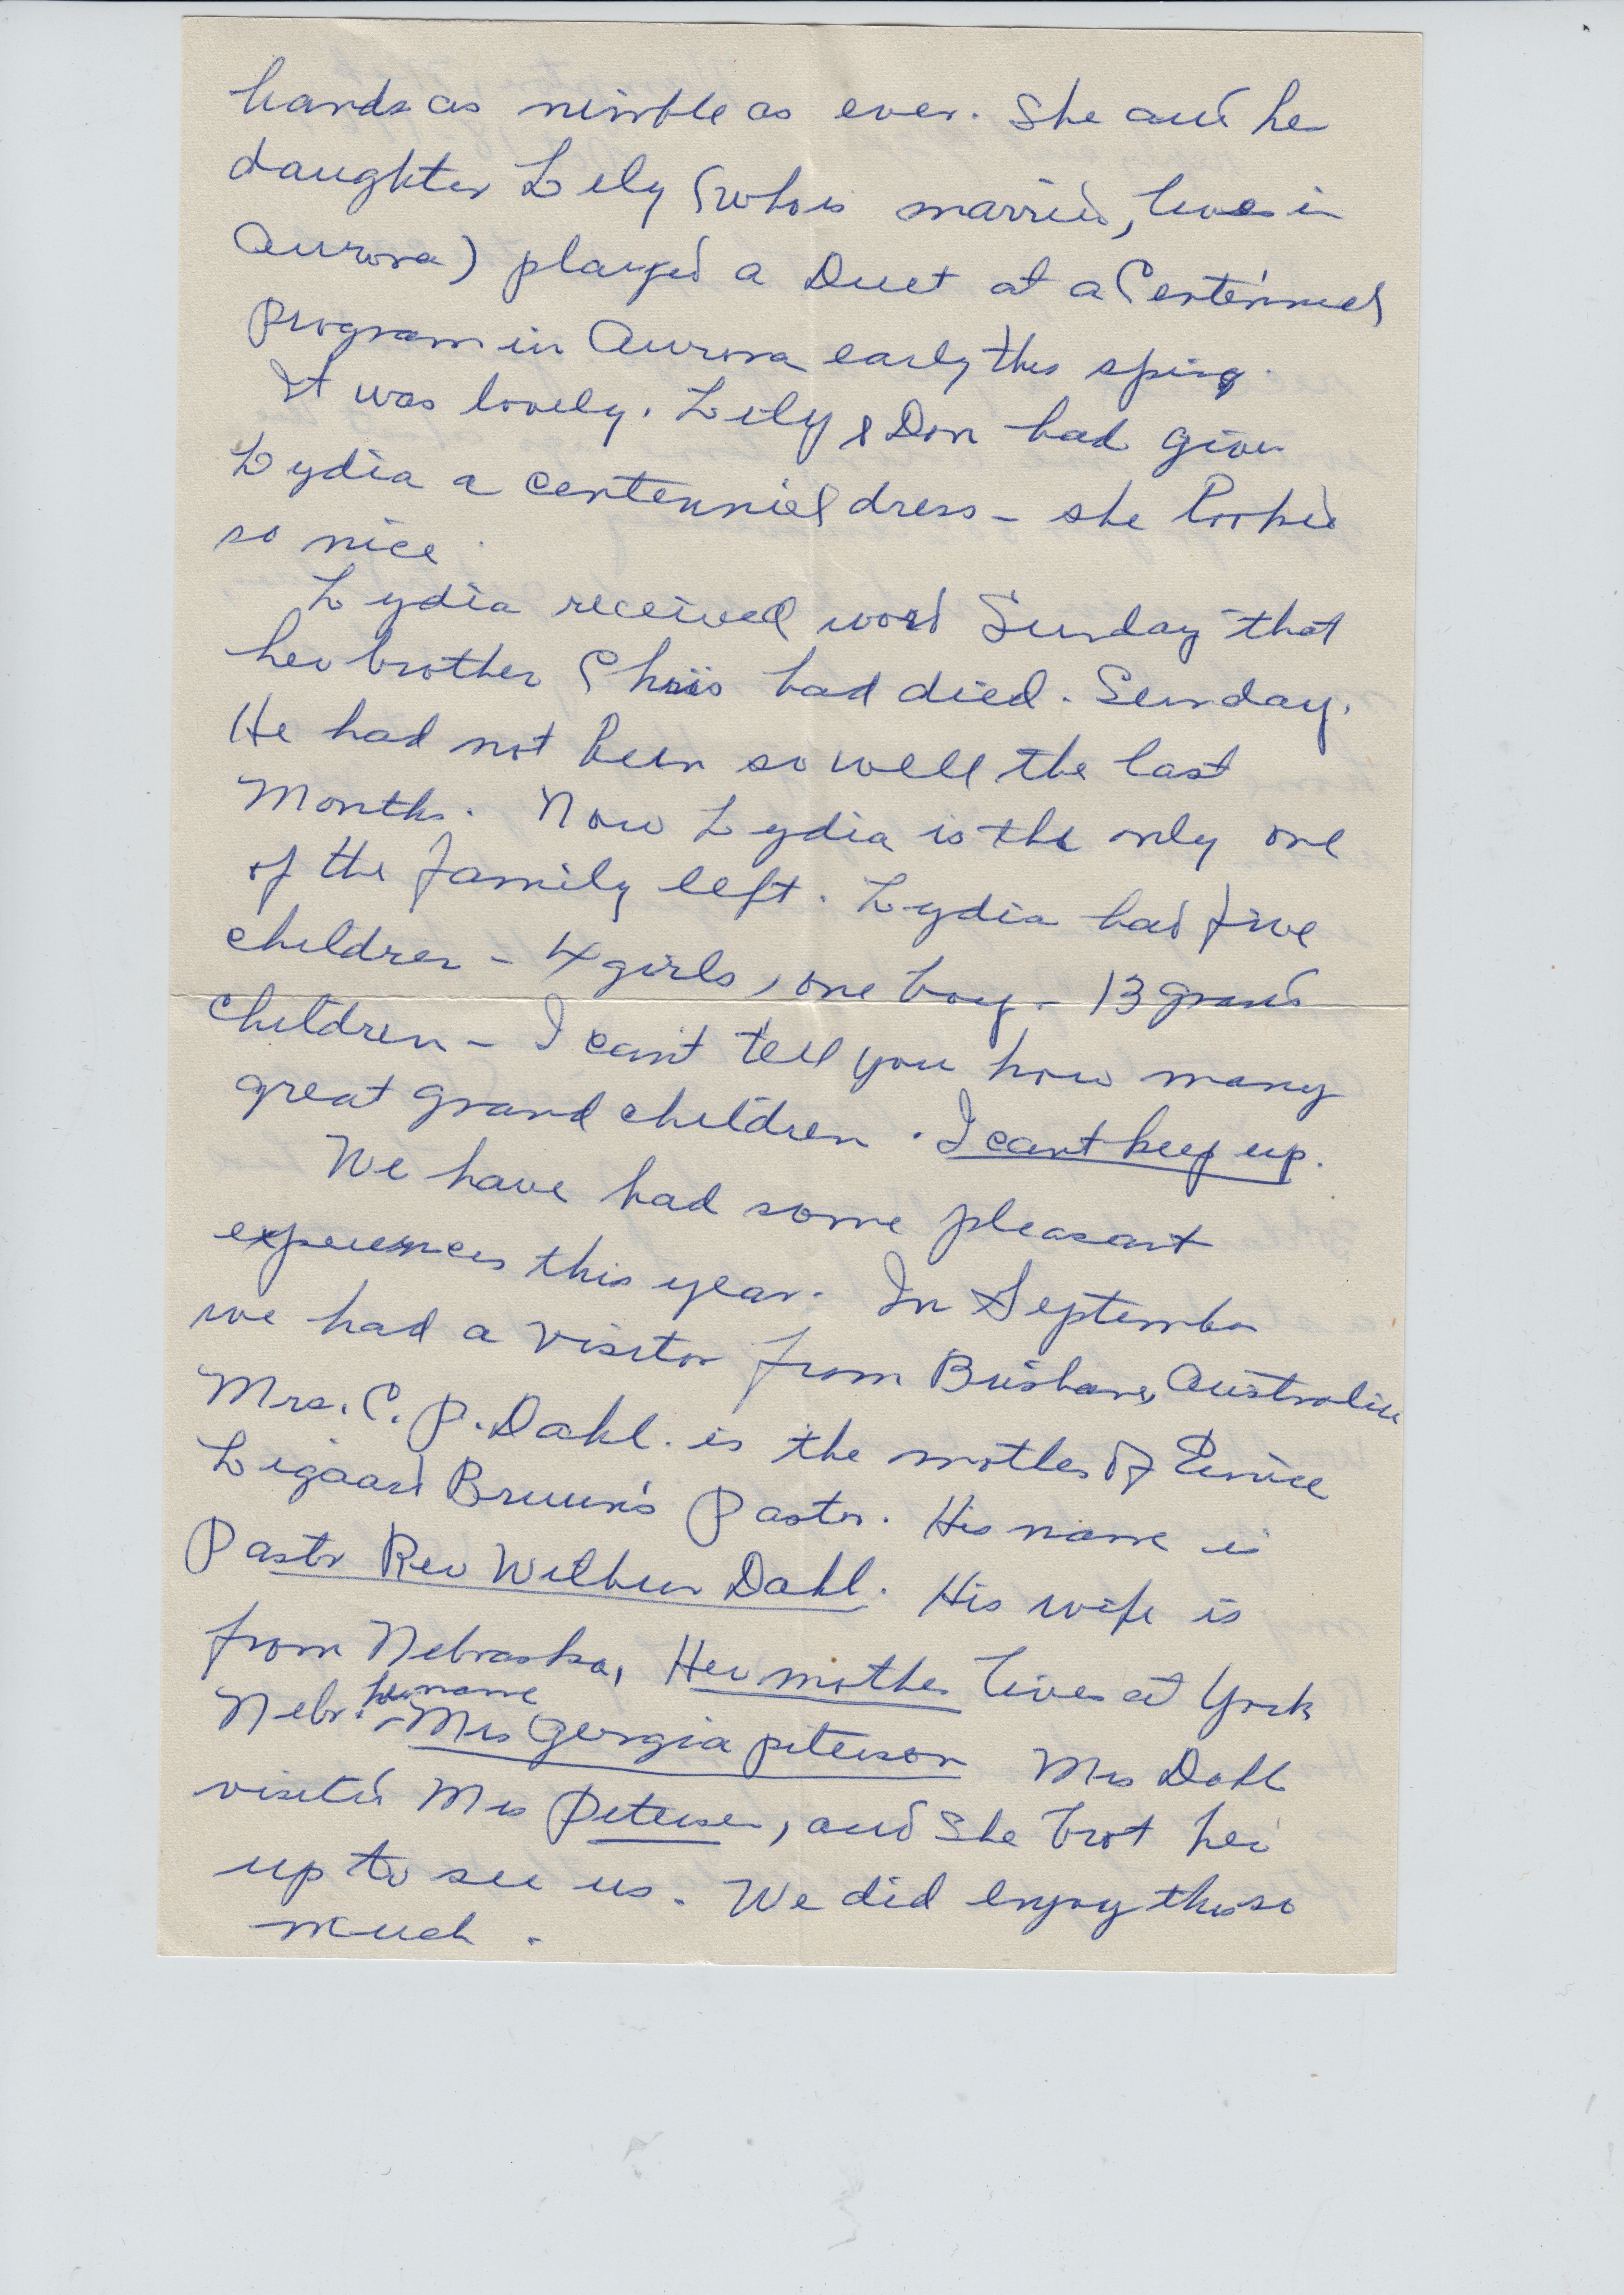 hands as nimble as ever. She and her
daughter Lily (who is married, lives in
Aurora) played a Duet at a Centennial
program in Aurora early this sping.
It was lovely. Lily & Don had given
Lydia a centennial dress - she looked
so nice.
Lydia received word Sunday that
her brother Chris had died. Sunday.
He had not been so well the last
Months. Now Lydia is the only one
of the family left. Lydia had five
children - 4 girls, one boy - 13 grand
children - I can't tell you how many
great grand children. I cant keep up.
We have had some pleasant
experiences this year. In September
we had a visitor from Brisbane, Australia
Mrs. C. P. Dahl. is the mother of Eunice
Ligaard Bruun's Pastor. His name is
Pastor Rev Wilbur Dahl. His wife is
from Nebraska, Her mother lives at York
Nebr. - her name Mrs Georgia peterson Mrs Dahl
visited Mrs Petersen, and she brot her
up to see us. We did enjoy this so
much.